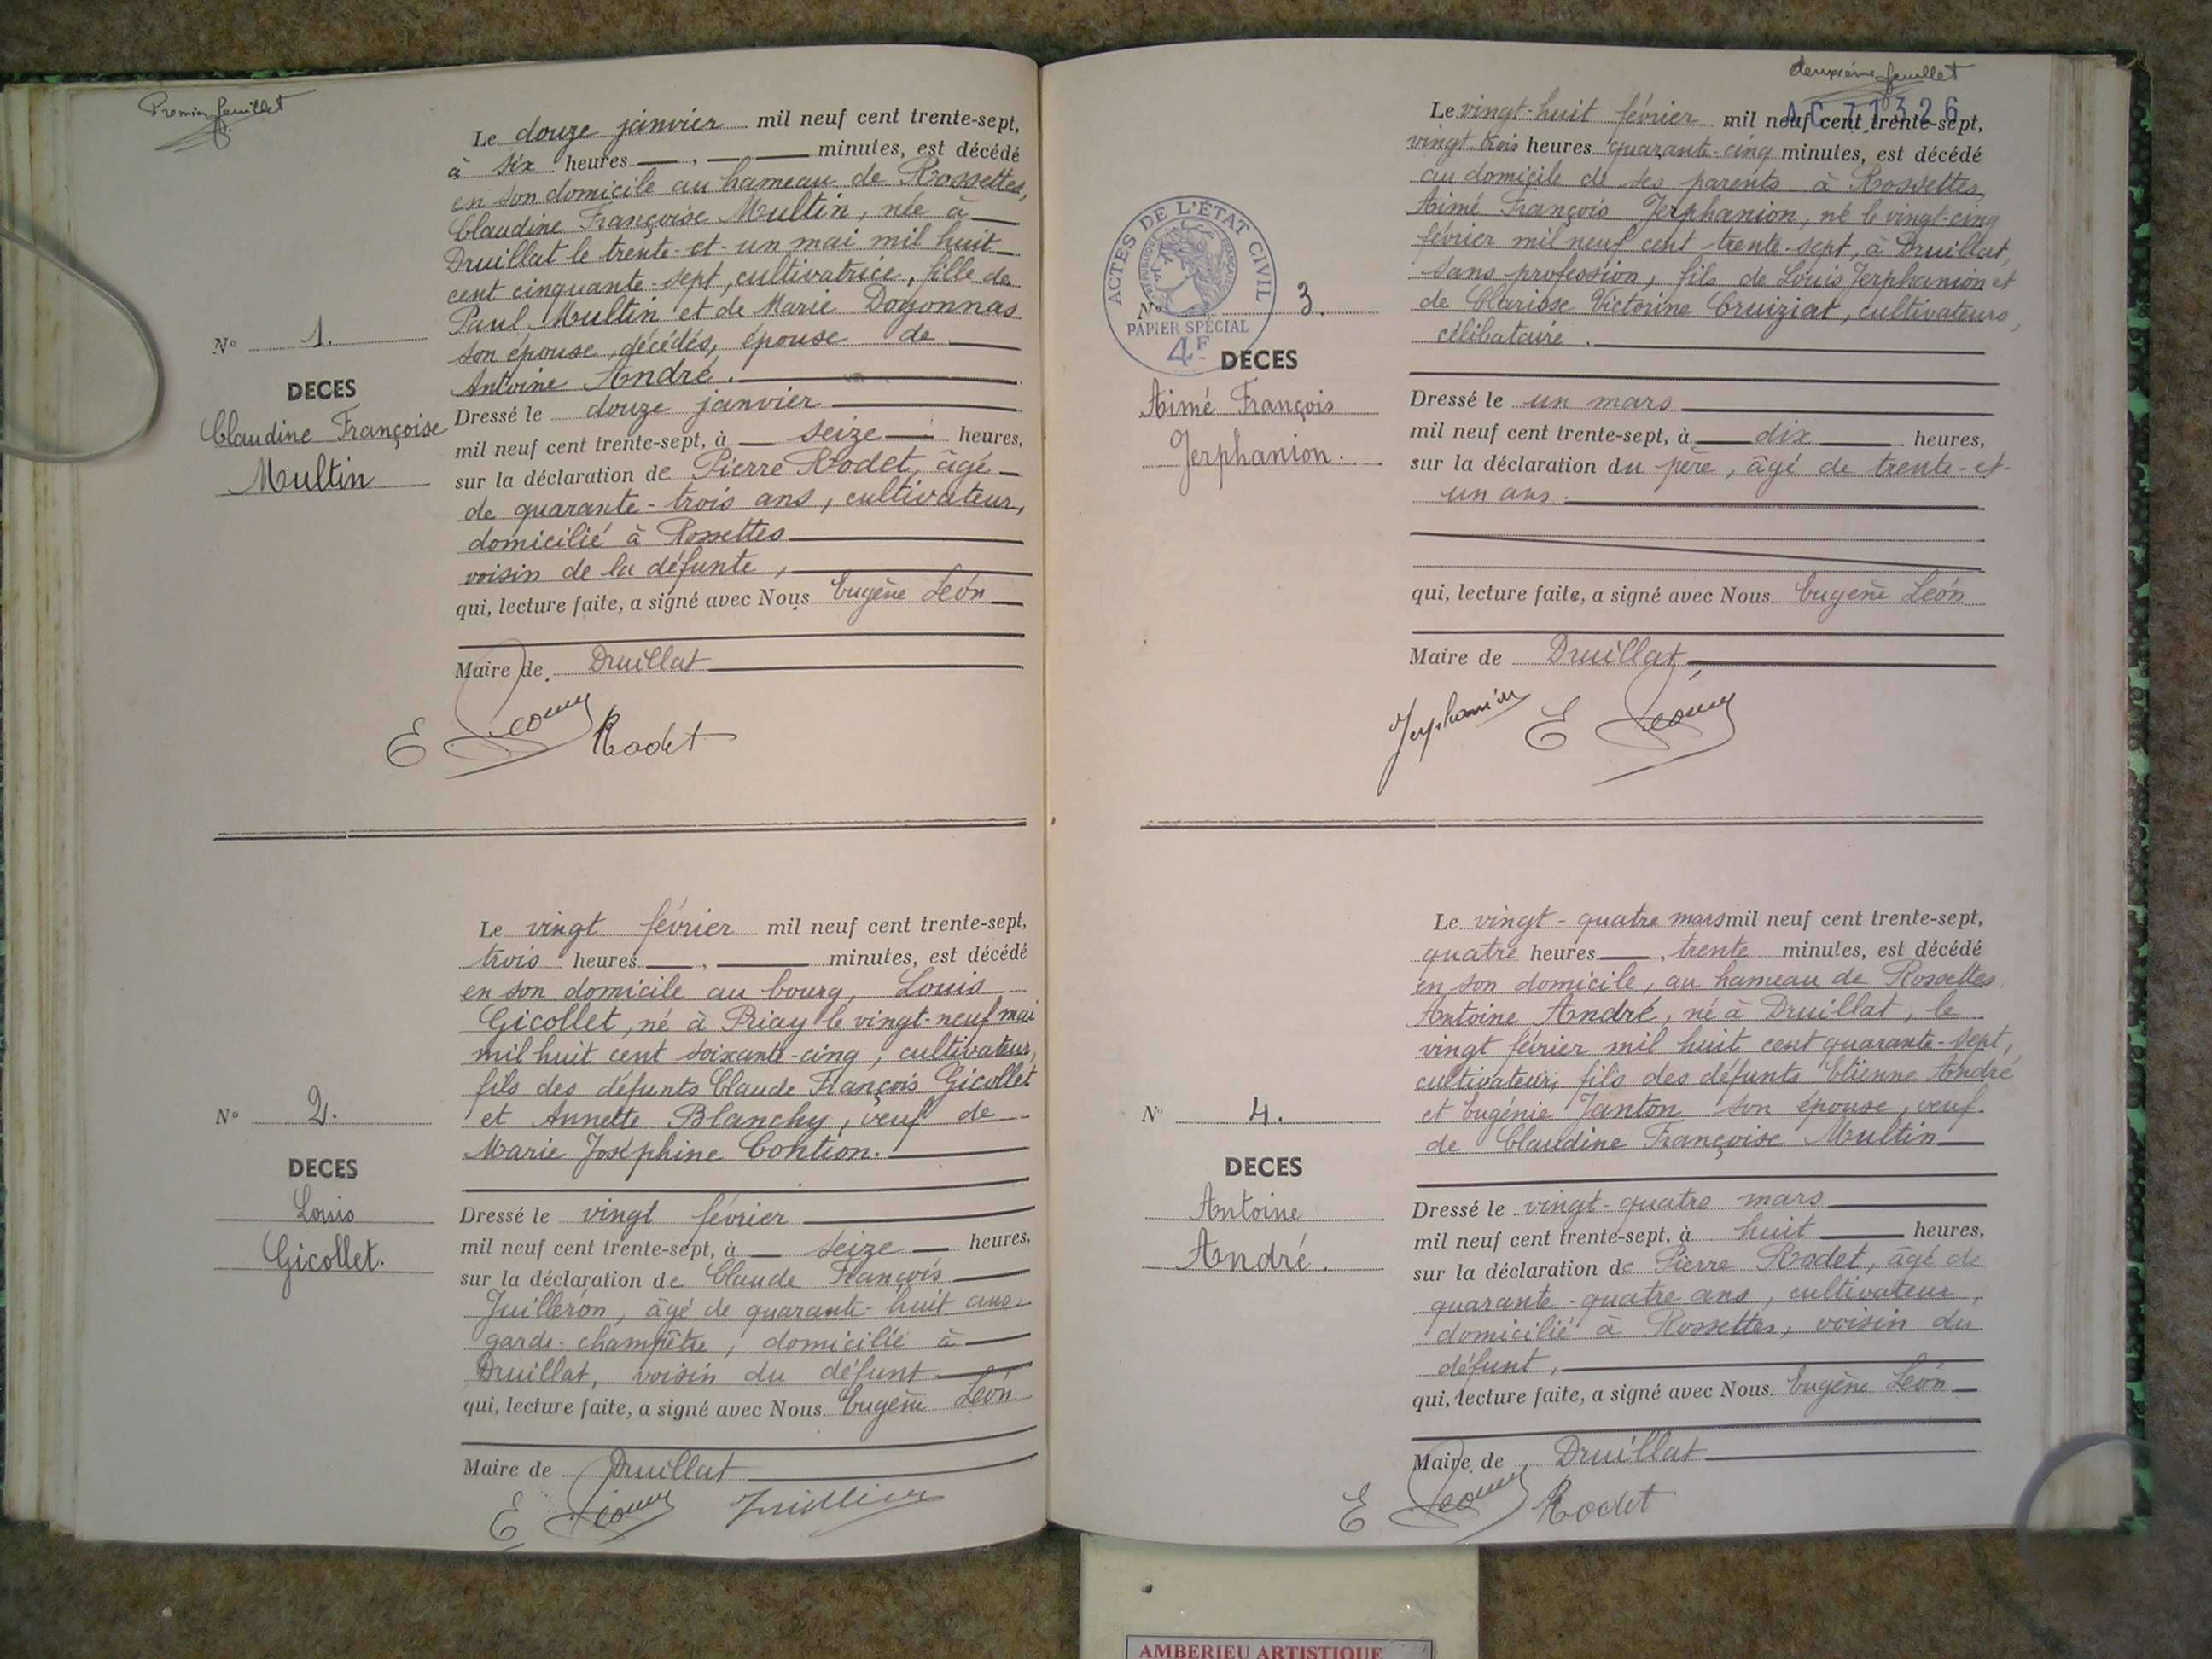 Premier feuillet
Le douze janvier mil neuf cent trente-sept,
à six heures — , — minutes, est décédé
en son domicile au hameau de Rossettes,
Claudine Françoise Multin, née à
Druillat le trente-et-un mai mil huit
cent cinquante-sept, cultivatrice, fille de
Paul Multin et de Marie Doyonnas
son épouse, décédés, épouse de
Antoine André.
N° 1.
DECES
Claudine Françoise
Multin
Dressé le douze janvier
mil neuf cent trente-sept, à — seize — heures,
sur la déclaration de Pierre Rodet, âgé
de quarante-trois ans, cultivateur,
domicilié à Rossettes
voisin de la défunte,
qui, lecture faite, a signé avec Nous Eugène Léon
Maire de Druillat
E Léon Rodet
Le vingt février mil neuf cent trente-sept,
trois heures — , — minutes, est décédé
en son domicile au bourg, Louis
Gicollet, né à Priay le vingt-neuf mai
mil huit cent soixante-cinq, cultivateur,
fils des défunts Claude François Gicollet
et Annette Blanchy, veuf de
Marie Joséphine Convion.
N° 2.
DECES
Louis
Gicollet.
Dressé le vingt février
mil neuf cent trente-sept, à — seize — heures,
sur la déclaration de Claude François
Juilleron, âgé de quarante-huit ans,
garde-champêtre, domicilié à
Druillat, voisin du défunt
qui, lecture faite, a signé avec Nous Eugène Léon
Maire de Druillat
E Léon
deuxième feuillet
AC 71326
Le vingt-huit février mil neuf cent trente-sept,
vingt-trois heures quarante-cinq minutes, est décédé
au domicile de ses parents à Rossettes,
Aimé François Jerphanion, né le vingt-cinq
février mil neuf cent trente-sept, à Druillat,
sans profession, fils de Louis Jerphanion et
de Clarisse Victorine Cruiziat, cultivateurs,
célibataire.
ACTES DE L'ÉTAT CIVIL
RÉPUBLIQUE FRANÇAISE
PAPIER SPÉCIAL
4F
N° 3.
DECES
Aimé François
Jerphanion.
Dressé le un mars
mil neuf cent trente-sept, à — dix — heures,
sur la déclaration du père, âgé de trente-et-
un ans.
qui, lecture faite, a signé avec Nous Eugène Léon
Maire de Druillat
Jerphanion E Léon
Le vingt-quatre mars mil neuf cent trente-sept,
quatre heures — , trente minutes, est décédé
en son domicile, au hameau de Rossettes
Antoine André, né à Druillat, le
vingt février mil huit cent quarante-sept,
cultivateur, fils des défunts Etienne André
et Eugénie Janton son épouse, veuf
de Claudine Françoise Multin
N° 4.
DECES
Antoine
André.
Dressé le vingt-quatre mars
mil neuf cent trente-sept, à huit heures,
sur la déclaration de Pierre Rodet, âgé de
quarante-quatre ans, cultivateur,
domicilié à Rossettes, voisin du
défunt,
qui, lecture faite, a signé avec Nous Eugène Léon
Maire de Druillat
E Léon Rodet
AMBERIEU ARTISTIQUE